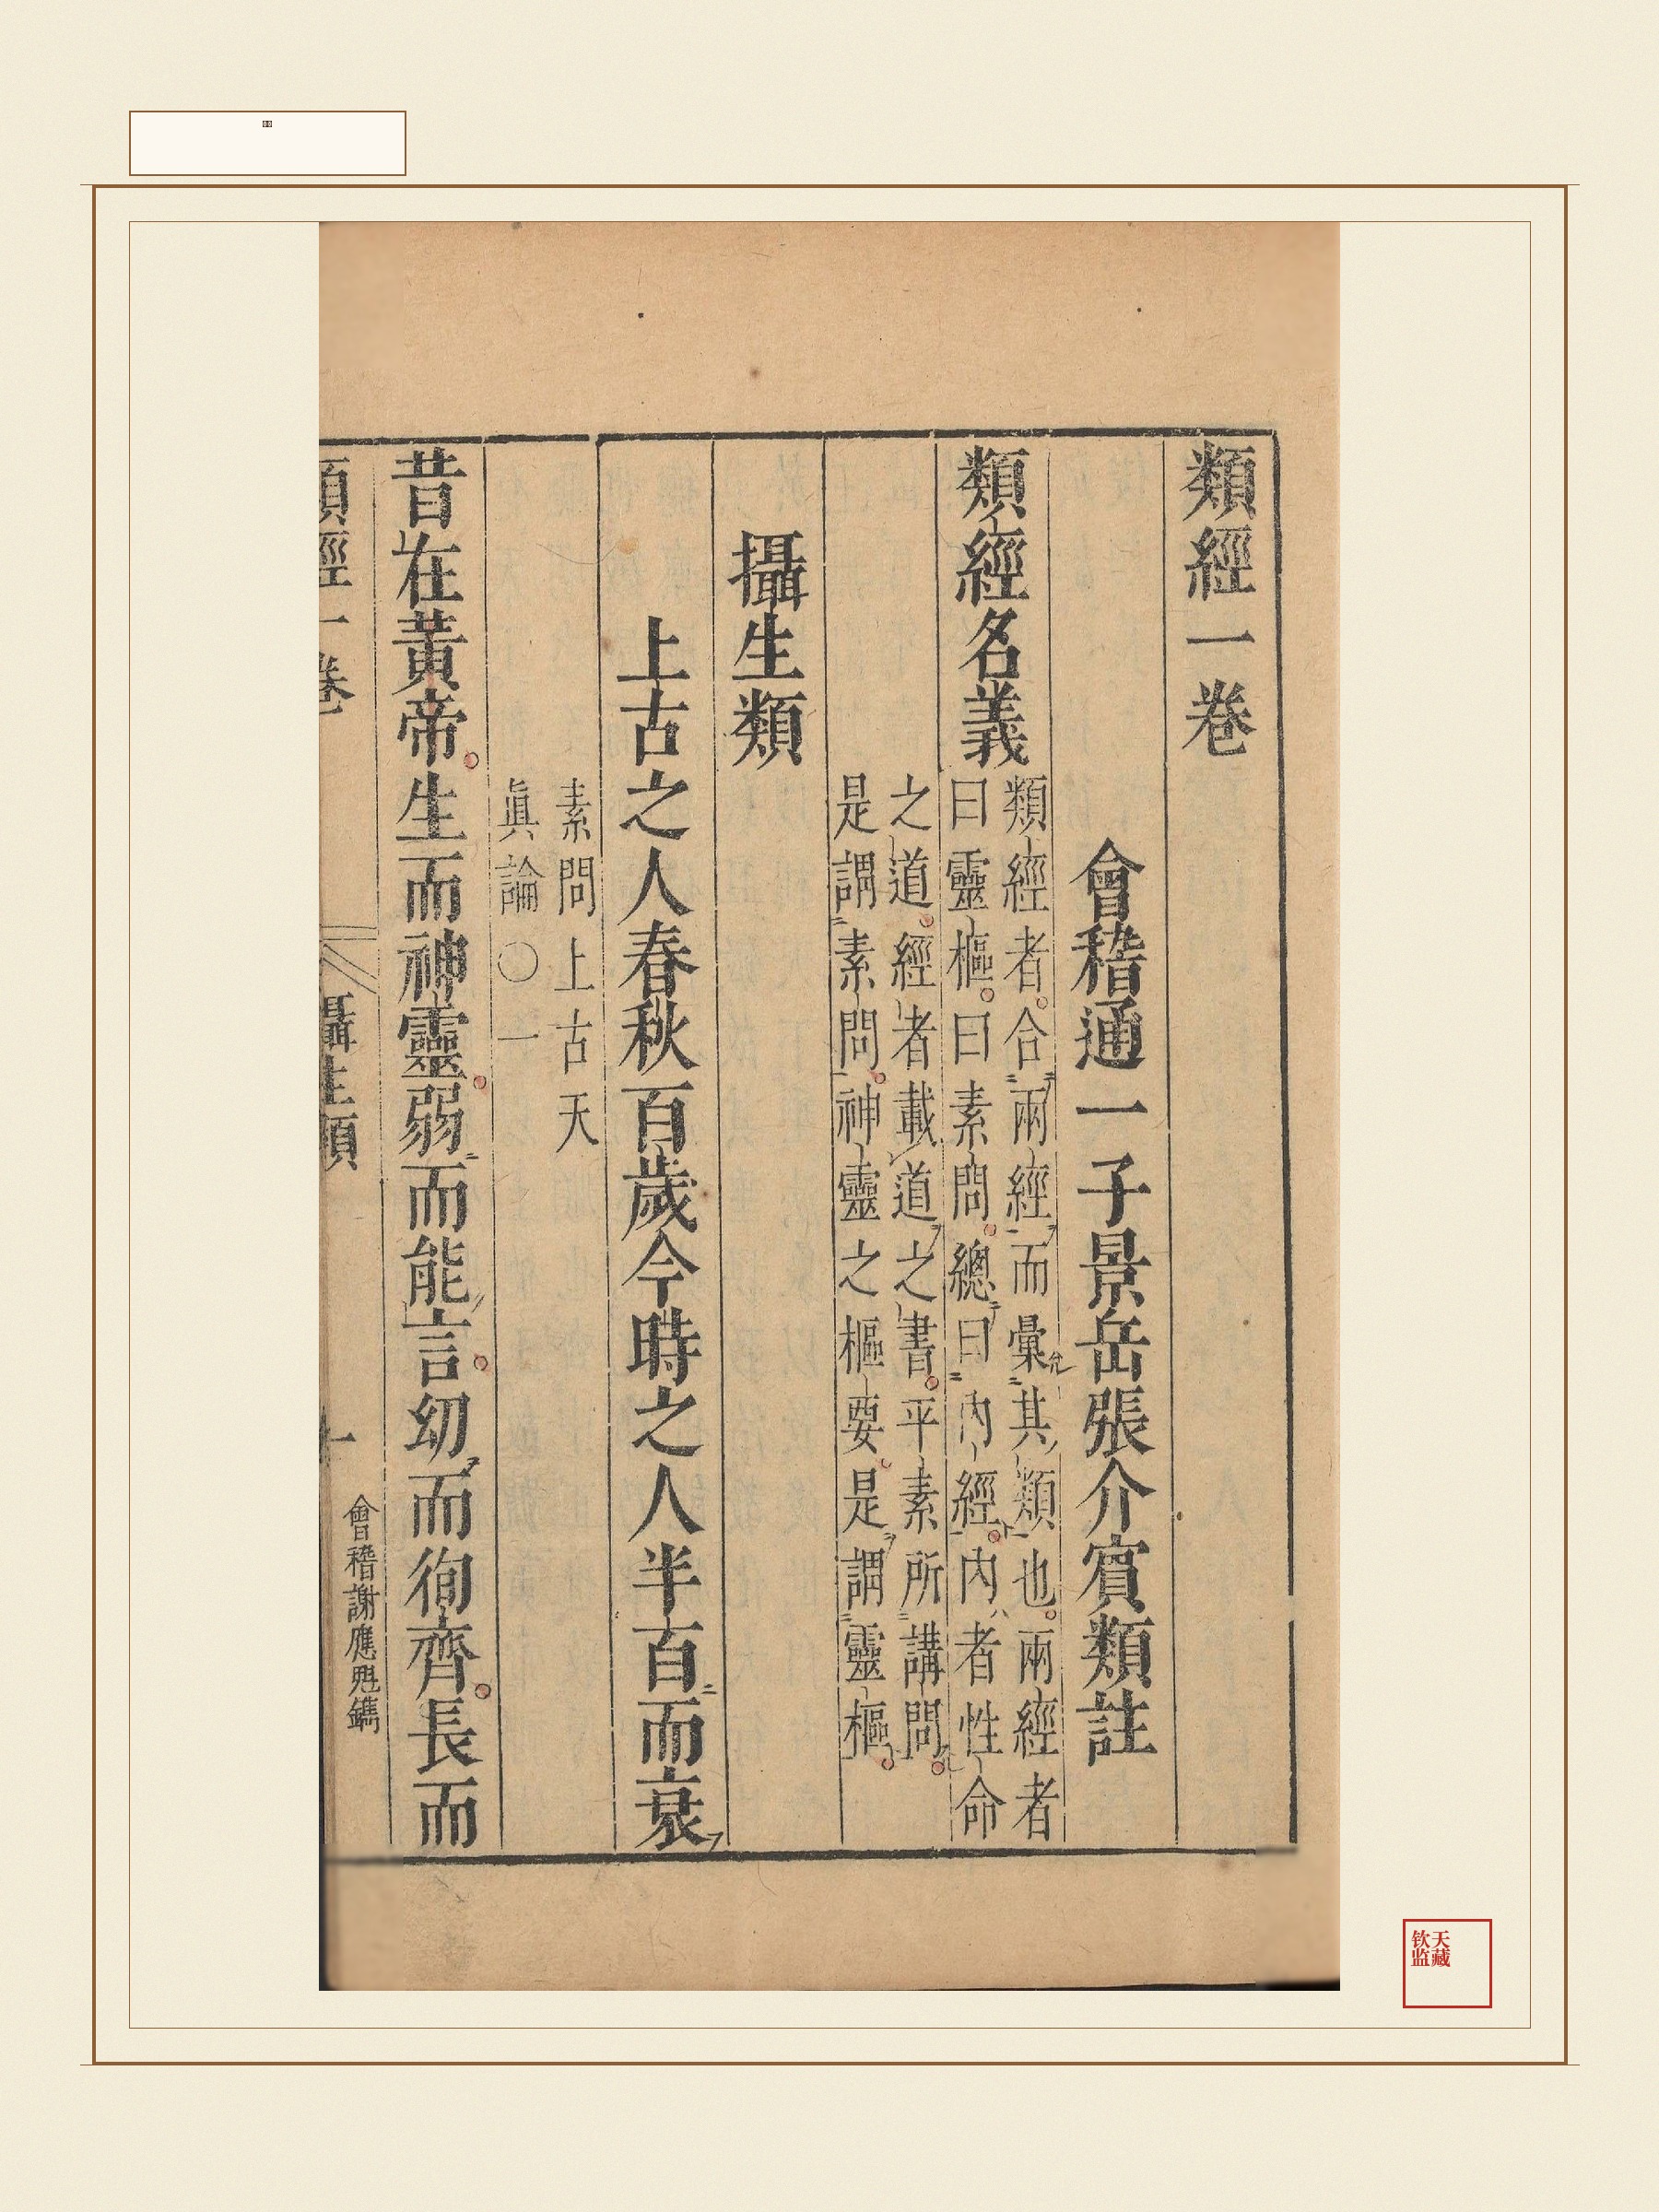 類經一卷
會稽通一子景岳張介賓類註
類經名義
類經者合兩經而彙其類也兩經者
曰靈樞曰素問總曰內經內者性命
之道經者載道之書平素所講問
是謂素問神靈之樞要是謂靈樞
攝生類
上古之人春秋百歲今時之人半百而衰
素問上古天
真論〇一
昔在黃帝生而神靈弱而能言幼而徇齊長而
類經一卷 攝生類 一 會稽謝應魁鐫
天藏
钦监